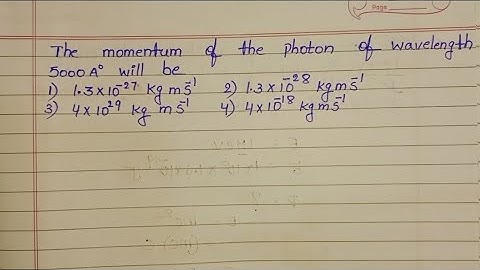 Page
The momentum of the photon of wavelength
5000 A° will be
1) 1.3×10⁻²⁷ kg mS⁻¹ 2) 1.3×10⁻²⁸ kg mS⁻¹
3) 4×10²⁹ kg mS⁻¹ 4) 4×10⁻¹⁸ kg mS⁻¹